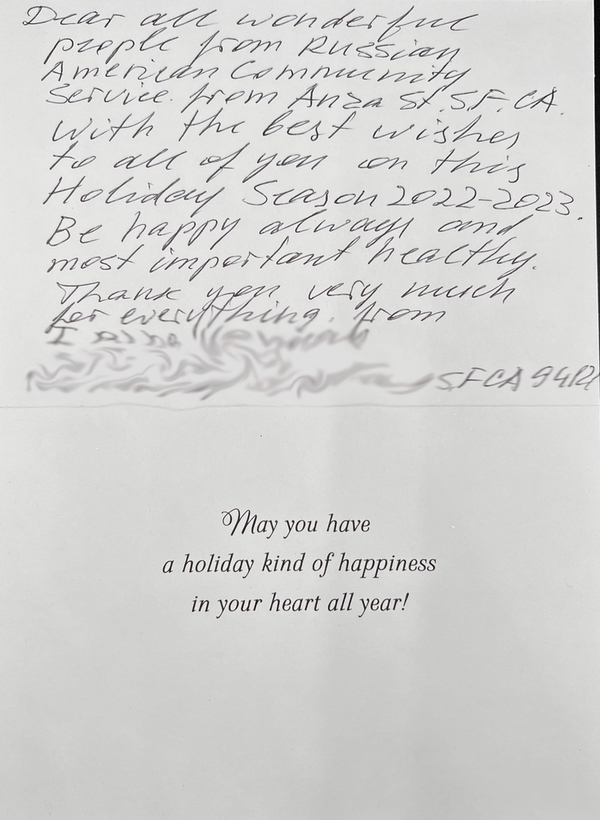 Dear all wonderful
people from Russian
American Community
Service. from Anza St. S.F. CA.
With the best wishes
to all of you on this
Holiday Season 2022-2023.
Be happy always and
most important healthy.
Thank you very much
for everything. from
SFCA
May you have
a holiday kind of happiness
in your heart all year!